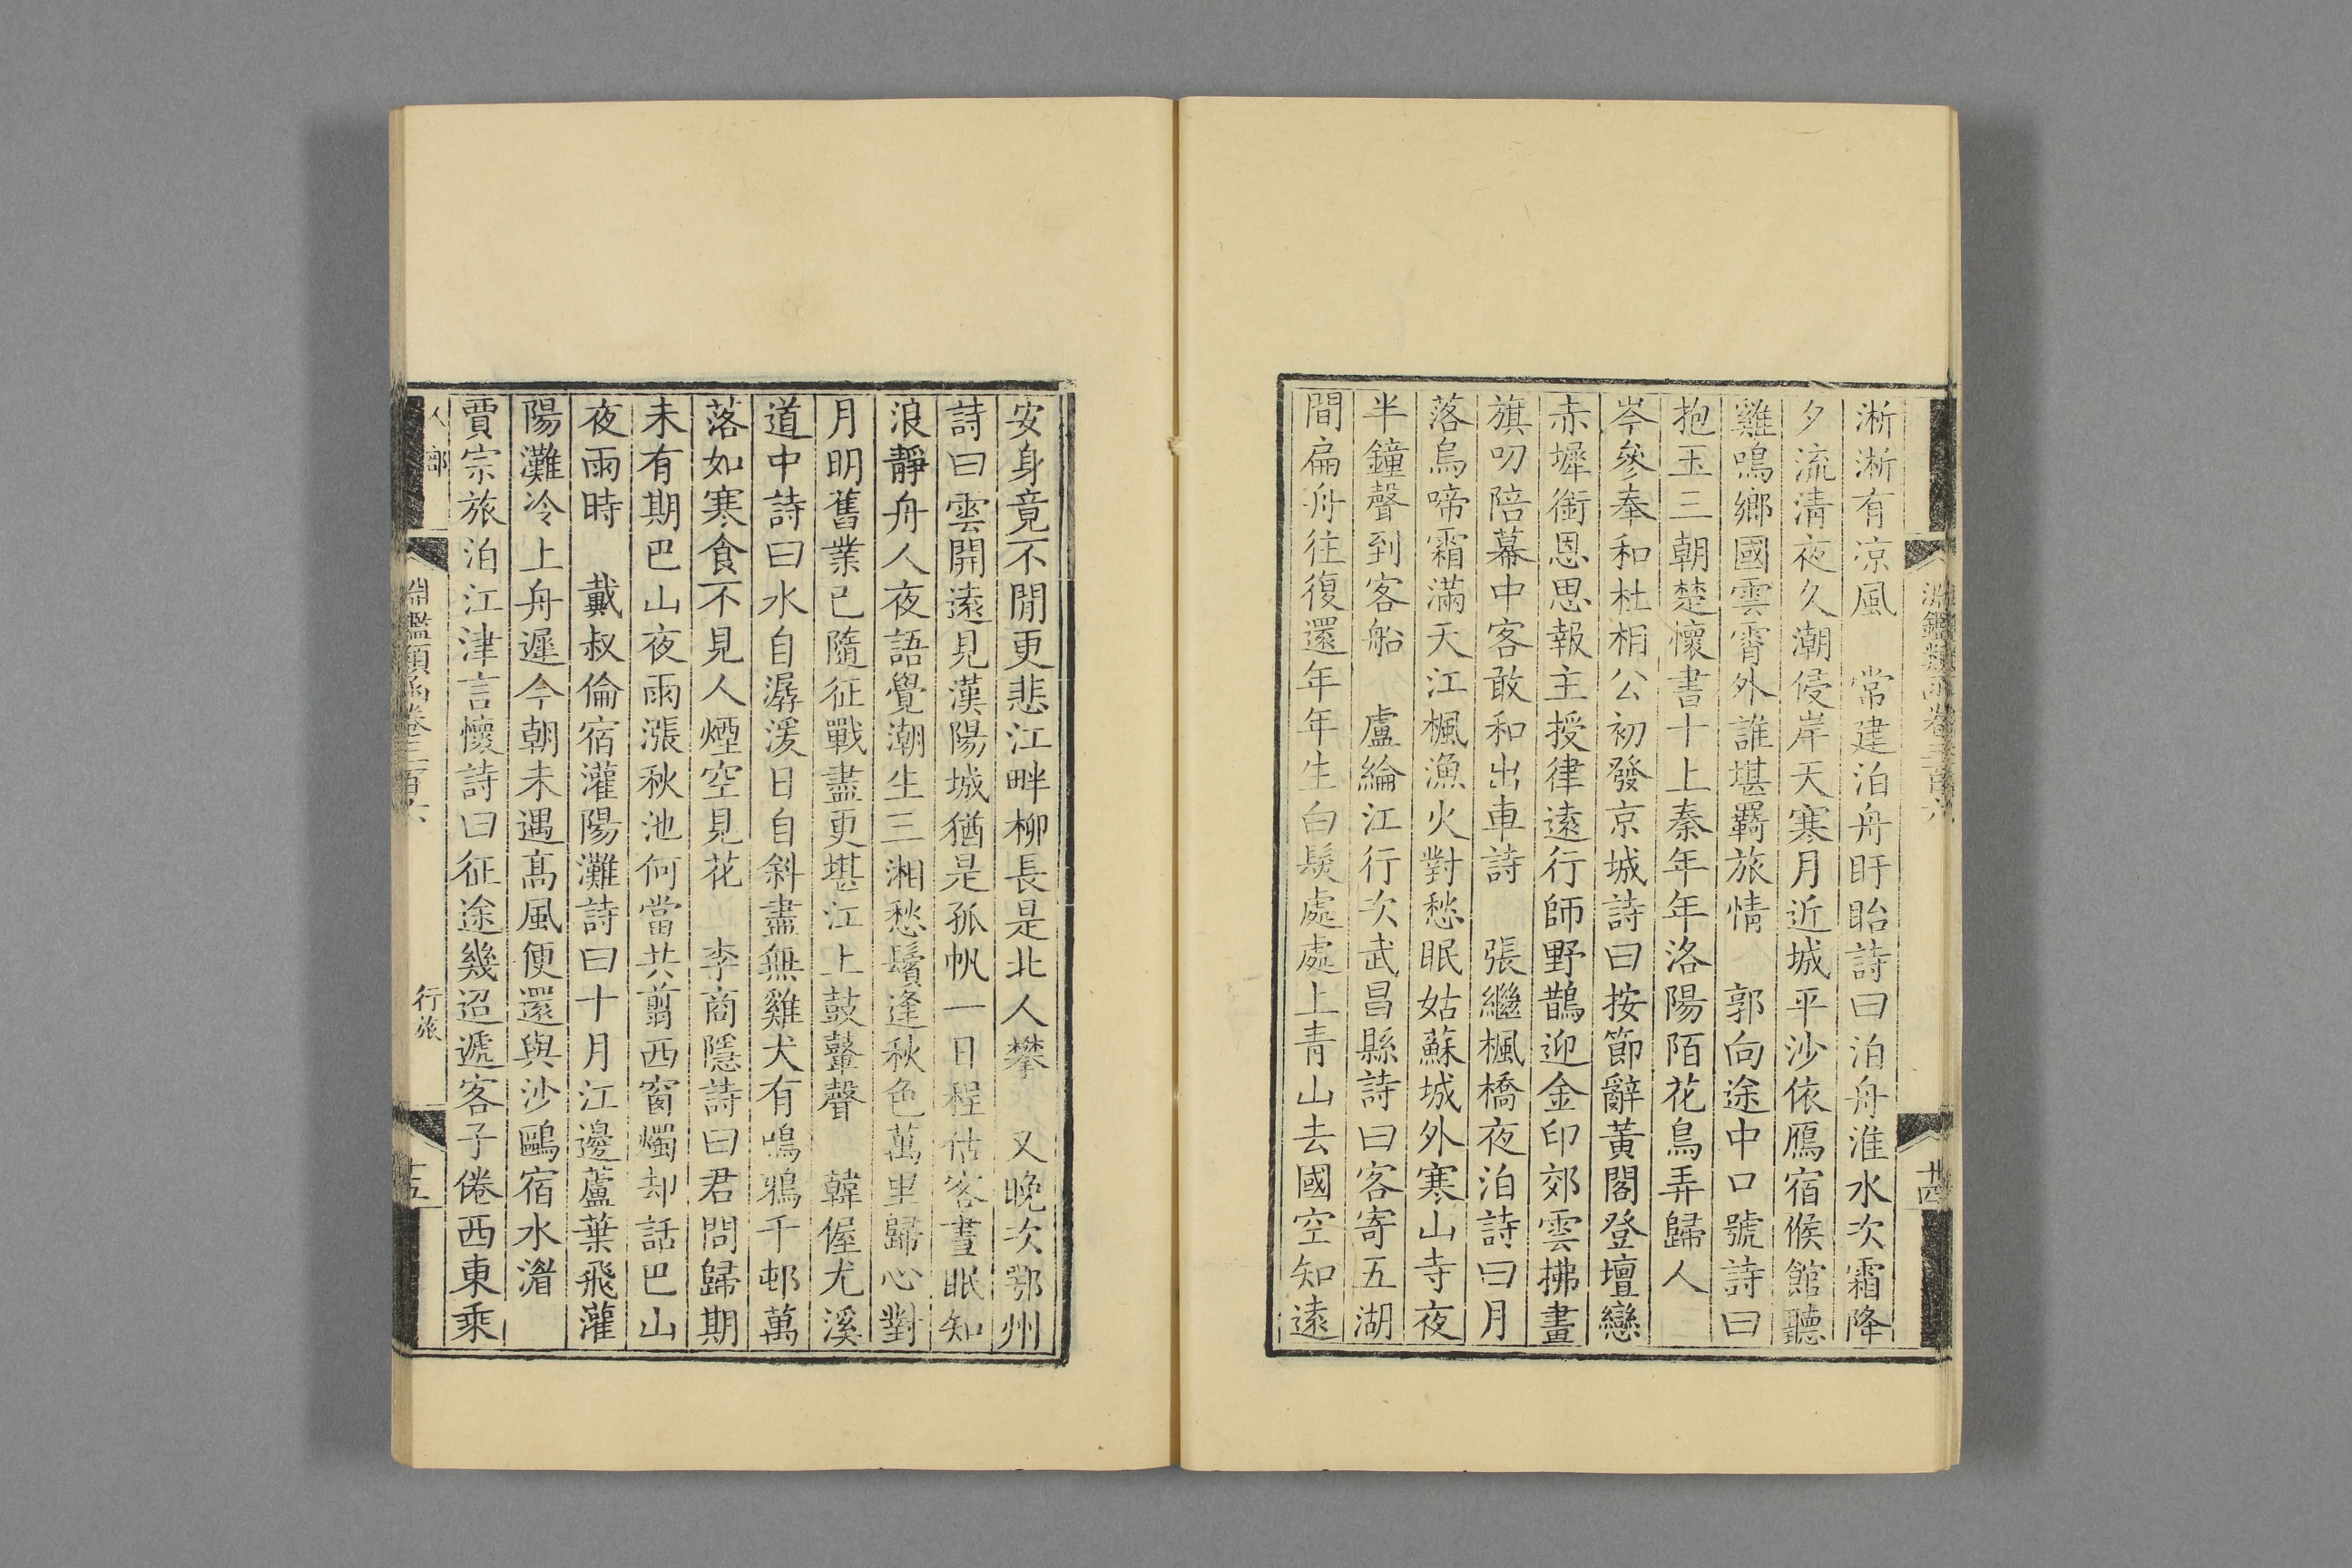 淵鑑類函卷三百六
廿四
淅淅有凉風　常建泊舟盱眙詩曰泊舟淮水次霜降
夕流清夜久潮侵岸天寒月近城平沙依鴈宿候館聽
雞鳴鄉國雲霄外誰堪羇旅情　郭向途中口號詩曰
抱玉三朝楚懷書十上秦年年洛陽陌花鳥弄歸人
岑參奉和杜相公初發京城詩曰按節辭黃閣登壇戀
赤墀銜恩思報主授律遠行師野鵲迎金印郊雲拂畫
旗叨陪幕中客敢和出車詩　張繼楓橋夜泊詩曰月
落烏啼霜滿天江楓漁火對愁眠姑蘇城外寒山寺夜
半鐘聲到客船　盧綸江行次武昌縣詩曰客寄五湖
間扁舟往復還年年生白髮處處上青山去國空知遠
安身竟不閒更悲江畔柳長是北人攀　又晚次鄂州
詩曰雲開遠見漢陽城猶是孤帆一日程估客晝眠知
浪靜舟人夜語覺潮生三湘愁鬢逢秋色萬里歸心對
月明舊業已隨征戰盡更堪江上鼓鼙聲　韓偓尤溪
道中詩曰水自潺湲日自斜盡無雞犬有鳴鴉千邨萬
落如寒食不見人煙空見花　李商隱詩曰君問歸期
未有期巴山夜雨漲秋池何當共翦西窗燭却話巴山
夜雨時　戴叔倫宿灌陽灘詩曰十月江邊蘆葉飛灌
陽灘冷上舟遲今朝未遇高風便還與沙鷗宿水湄
賈宗旅泊江津言懷詩曰征途幾迢遞客子倦西東乘
人部
淵鑑類函卷三百六
行旅
十五